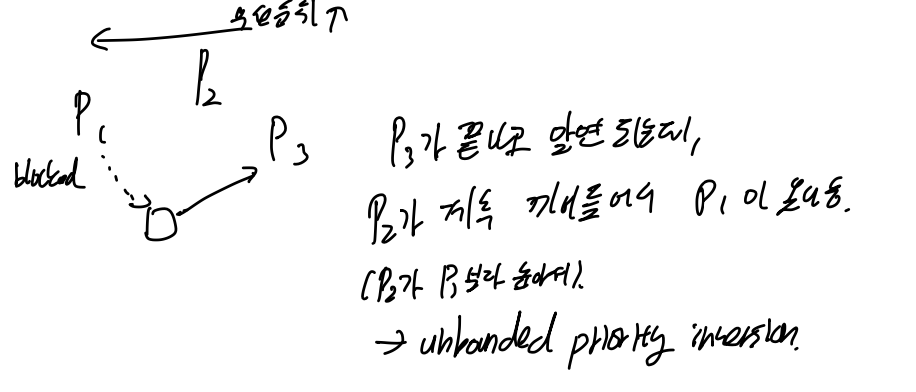 우선순위 ↑
P1
P2
P3
blocked
P3가 끝나고 말면 되는데,
P2가 계속 끼어들어서 P1이 못나옴.
(P2가 P3보다 높아서).
→ unbounded priority inversion.